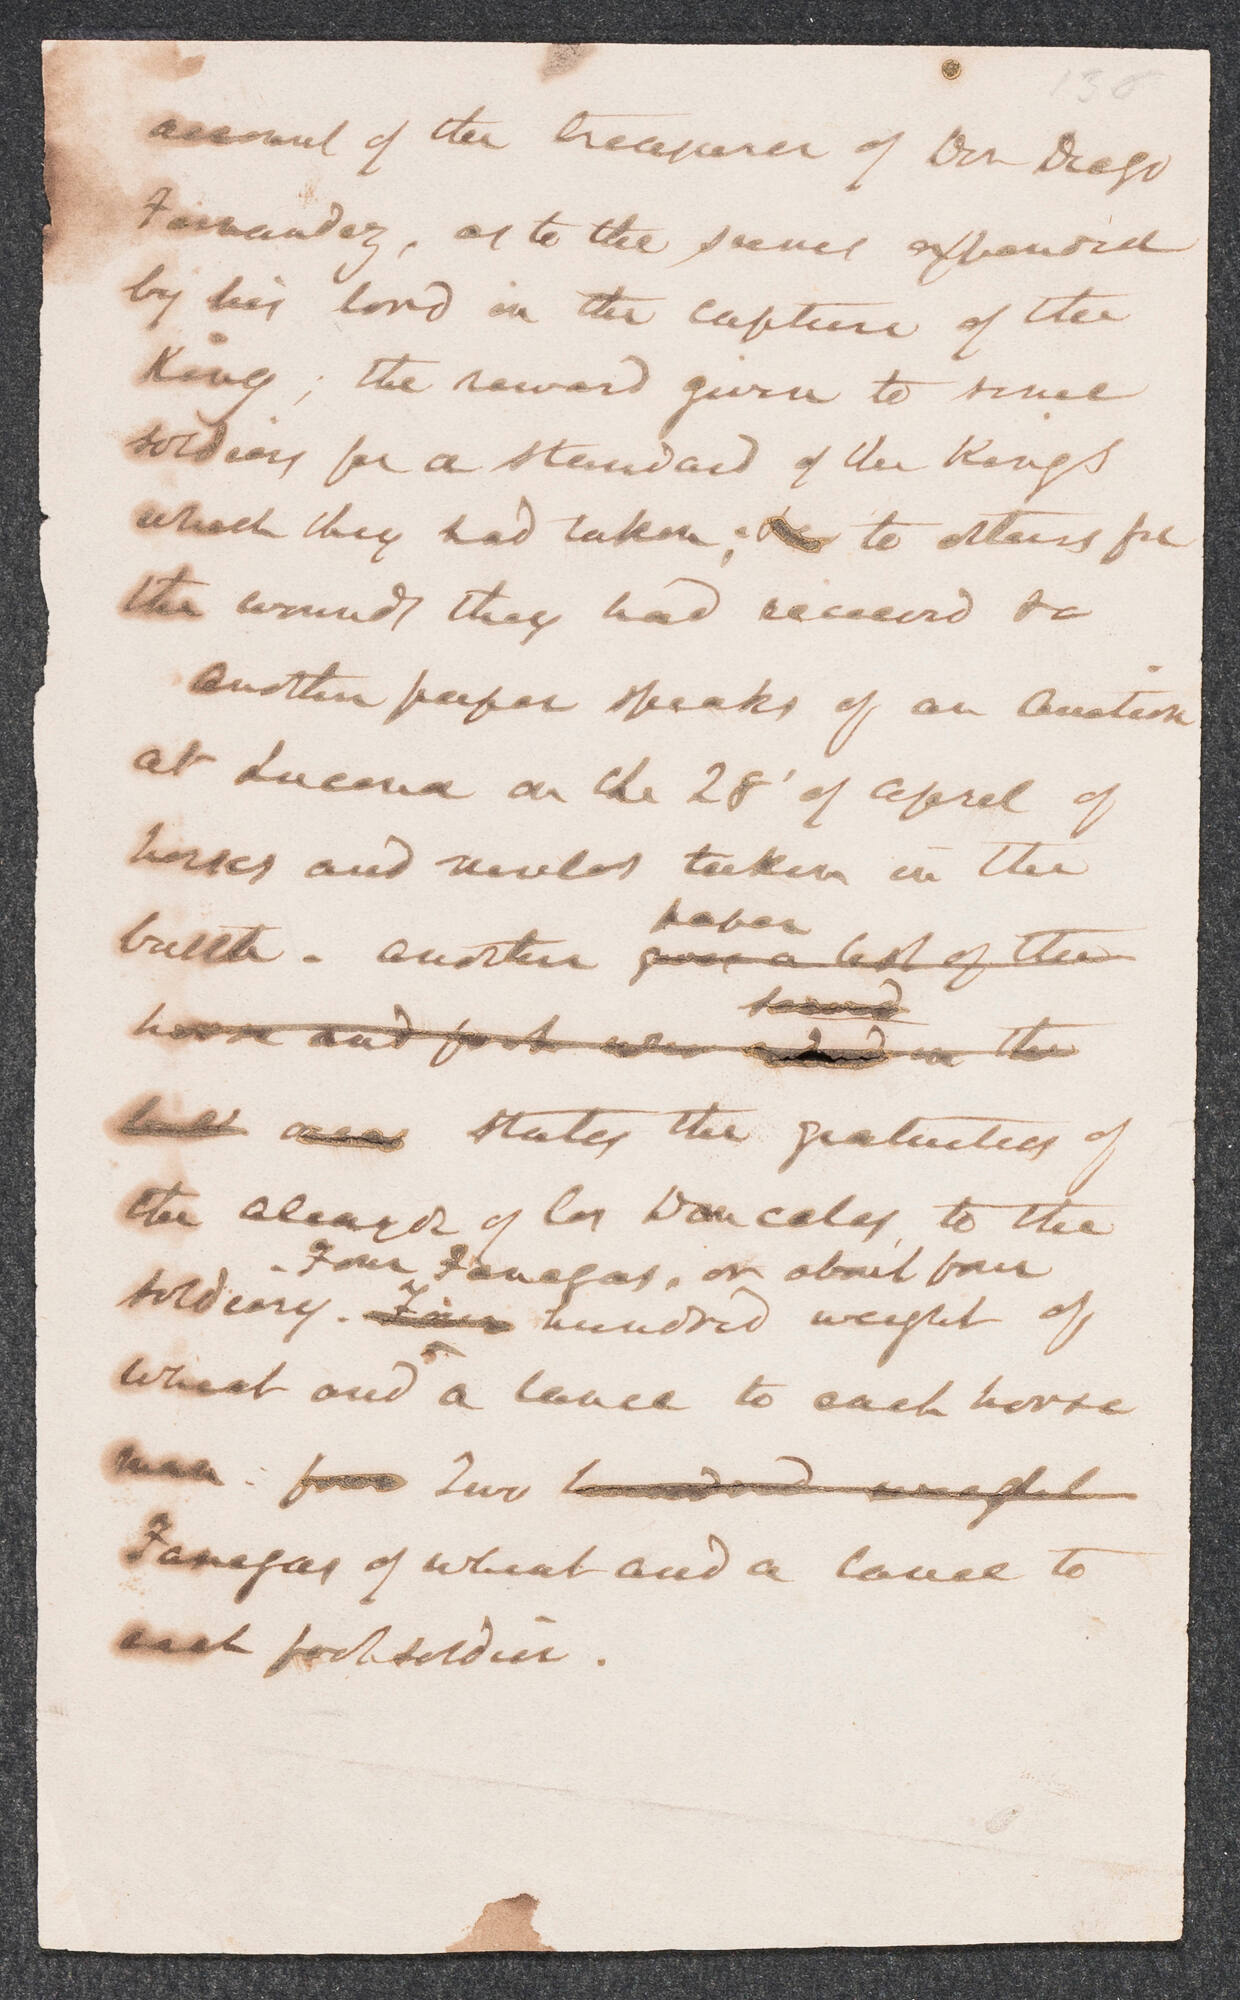 138
account of the treasurer of Don Diego
Fernandez, as to the sums expended
by his lord in the capture of the
King; the reward given to some
soldiers for a standard of the Kings
which they had taken; to others for
the wounds they had received &c
Another paper speaks of an auction
at Lucena on the 28' of April of
horses and mules taken in the
paper
battle. another gives a list of the
served
horse and foot who in the
states the gratuities of
the alcayde of los Donceles, to the
Four Fanegas, or about four
soldiers. Four hundred weight of
wheat and a lance to each horse
man. four Two hundred weight
Fanegas of wheat and a lance to
each foot soldier.